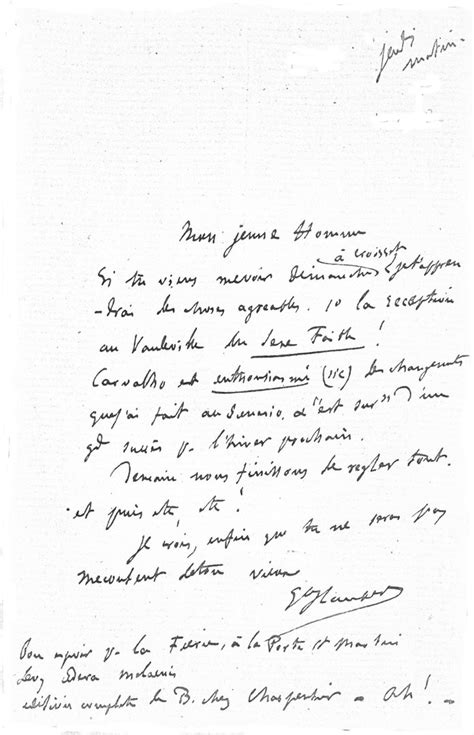 jeudi
matin.
Mon jeune Homme
à Croisset
Si tu viens me voir Dimanche je t'appren
-drai des choses agréables. 1º la réception
au Vaudeville du Sexe Faible !
Carvalho est enthousiasmé (sic) des changements
que j'ai fait au Scénario, & "est sur" d'un
gd succès p. l'hiver prochain.
Demain nous finissons de régler tout.
et puis etc etc !
Je crois, enfin que tu ne seras pas
mécontent de ton vieux
Gve Flaubert
Bon espoir p. la Féerie, à la Porte St Martin
Levy
édition complète de B. chez Charpentier = Ah ! -